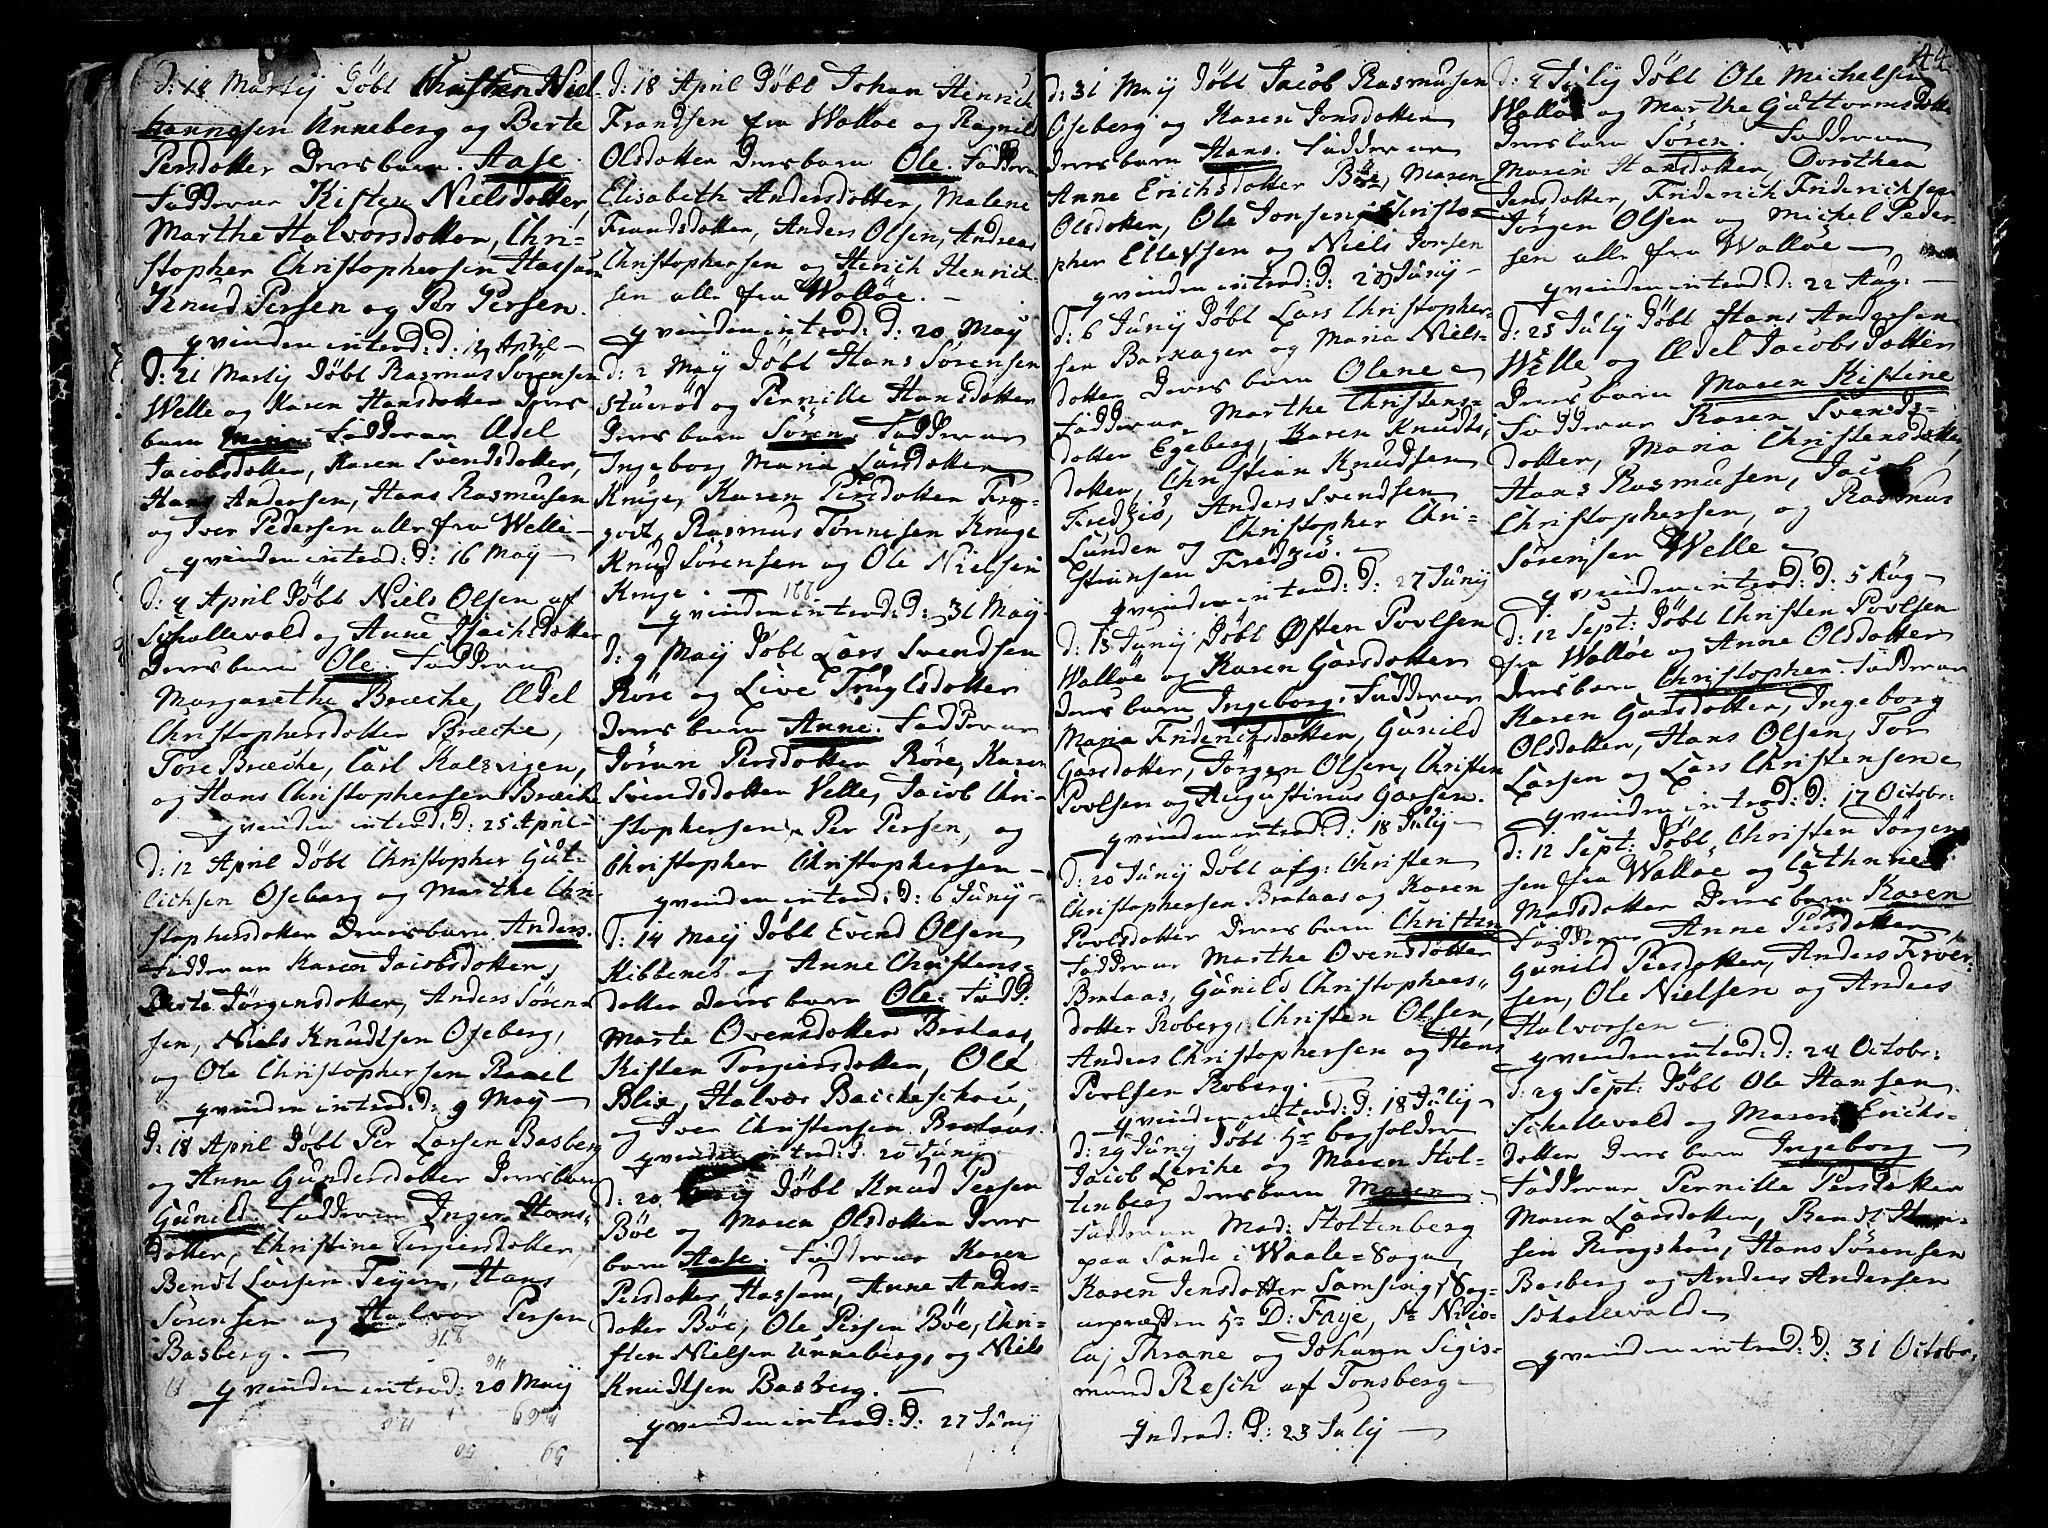 44.
D: 14 Martij Döbt Christen Niel-
sen Unneberg og Berte
Persdotter Deres barn. Aase.
Fadderne Kisten Nielsdotter,
Marthe Halvorsdotter, Chri-
stopher Christophersen Hassum
Knud Persen og Per Persen.
qvinden introd: D: 14 April –
D: 21 Martij Döbt Rasmus Sörensen
Welle og Karen Hansdotter Deres
barn Maria. Fadderne Edel
Jacobsdotter, Karen Svendsdotter,
Hans Andersen, Hans Rasmusen
og Iver Pedersen alle fra Welle –
qvinden introd: D: 16 Maÿ –
D: 4 April Döbt Niels Olsen af
Schallevald og Anne Isachsdotter
Deres barn Ole. Fadderne
Margarethe Bræche, Edel
Christophersdotter Bræche,
Tore Bræche, Carl Kalsvigen,
og Hans Christophersen Bræche
qvinden introd: D: 25 April –
D: 12 April Döbt Christopher Gut-
lichsen Oseberg og Marthe Chri-
stophersdotter Deres barn. Anders.
Fadderne Karen Jacobsdotter,
Berte Jörgensdotter, Anders Sören-
sen, Niels Knudtsen Oseberg,
og Ole Christophersen Ramel
qvinden introd: D: 9 Maÿ –
D: 18 April Döbt Per Larsen Basberg
og Anne Gundersdotter Deres barn
Gunild. Fadderne Inger Hans-
dotter, Christine Torgiersdotter,
Bendt Larsen Teÿen, Hans
Sörensen og Halvor Persen
Basberg. –
qvinden introd: 20 Maÿ
D: 18 April Döbt Johan Henrich
Frandsen fra Walløe og Ragnild
Olsdotter Deres barn Ole. Fadderne
Elisabeth Andersdotter, Malene
Frandsdotter, Anders Olsen, Andreas
Christophersen og Henrich Henrich-
sen alle fra Walløe. –
qvinden introd: D: 20 Maÿ
D: 2 Maÿ Döbt Hans Sørensen
Stuerød og Pernille Hansdotter
Deres barn Sören. Fadderne
Ingeborg Maria Larsdotter
Knige, Karen Persdotter
Rasmus Tönnesen Knige
Knud Sørensen og Ole Nielsen
Knige. – 188
qvinden introd: D: 31 Maÿ
D: 9 Maÿ Döbt Lars Svendsen
Röre og Live Trugelsdotter
Deres barn Anne. Fadderne
Jöran Persdotter Röre, Karen
Svendsdotter Velle, Jacob Chri-
stophersen, Per Persen, og
Christopher Christophersen –
qvinden introd: D: 6 Junÿ –
D: 14 Maÿ Döbt Evend Olsen
Kibbenes og Anne Christens-
dotter Deres barn Ole. Fadd:
Marte Ovensdotter Brataas,
Kisten Torgiersdotter, Ole
Blix, Halvor Baccheschou,
og Iver Christensen Brataas.
qvinden introd: D. 20 Junÿ –
D: 20 Döbt Knud Persen
Böe og Maren Olsdotter Deres
barn Aase. Fadderne Karen
Persdotter Hassum, Anne Anders-
dotter Böe, Ole Persen Böe, Chri-
sten Nielsen Unneberg, og Niels
Knudtsen Basberg. –
qvinden introd: D: 27 Junÿ
D: 31 Maÿ Döbt Jacob Rasmusen
Oseberg og Karen Jonsdotter
Deres barn Hans. Fadderne
Anne Erichsdotter Böe, Maren
Olsdotter, Ole Jonsen, Christo-
pher Ellefsen og Niels Jonsen
qvinden introd: D: 20 Junÿ –
D: 6 Junÿ Döbt Lars Christopher-
sen Barkager og Maria Niels-
dotter Deres barn Olene –
Fadderne Marthe Christens-
dotter Egeberg, Karen Knudts-
dotter, Christian Knudsen
Fredziö, Anders Svendsen
Lunden og Christopher Chri-
stiansen Fredziö. –
qvinden introd: D: 27 Junÿ
D: 13 Junÿ Döbt Östen Povlsen
Walløe og Karen Garsdotter
Deres barn Ingeborg. Fadderne
Maria Friderichsdotter, Gunild
Garsdotter, Jorgen Olsen, Christen
Povlsen og Augustinus Garsen.
qvinden introd: D: 18 Julÿ –
D: 20 Junÿ Döbt afg: Christen
Christophersen Brataas og Karen
Povlsdotter Deres barn Christen
Fadderne Marthe Ovensdotter
Brataas, Gunild Christophers-
dotter Roberg, Christen Olsen,
Anders Christophersen og Hans
Povlsen Roberg. –
qvinden introd: D: 18 Julÿ –
D: 29 Junÿ Döbt Hr bogholder
Jacob Lerche og Maren Stol-
tenberg Deres barn Maren –
Fadderne Mad: Stoltenberg
paa Sande i Waale-Sogn
Karen Jensdotter Samsing, Sog-
nepræsten Hr D: Faÿe, Sr Nico-
laj Thrane og Johann Sigis-
mund Resch af Tonsberg –
Indrod: D: 23 Julÿ –
D: 4 Julÿ Döbt Ole Michelsen
Walløe og Marthe Guttormsdotter
Deres barn Sören. Fadderne
Maren Hansdotter, Dorothea
Jensdotter, Friderich Friderichsen
Jörgen Olsen og Michel Peder-
sen alle fra Walløe –
qvinden introd: D: 22 Aug: –
D: 25 Julÿ Döbt Hans Andersen
Welle og Edel Jacobsdotter
Deres barn Maren Kistine
Fadderne Karen Svends-
dotter, Maria Christensdotter,
Hans Rasmusen, Jacob
Christophersen, og Rasmus
Sörensen Welle –
qvinden introd: D: 5 Aug –
D: 12 Sept: Döbt Christen Povlsen
fra Walløe og Anne Olsdotter
Deres barn Christopher. Fadderne
Karen Garsdotter, Ingeborg
Olsdotter, Hans Olsen, Tor
Larsen og Lars Christensen –
qvinden introd: D: 17 Octobr:
D: 12 Sept: Döbt Christen Jörgen-
sen fra Walløe og Cathrine
Madsdotter Deres barn Karen
Fadderne Anne Persdotter
Gunild Persdotter, Anders Tover-
sen, Ole Nielsen og Anders
Halvorsen –
qvinden introd: D: 24 Octobr:
D: 29 Sept: Döbt Ole Hansen
Schallevald og Maren Erichs-
dotter Deres barn Ingeborg –
Fadderne Pernille Persdotter
Maren Larsdotter, Bendt Han-
sen Ringshou, Hans Sörensen
Basberg og Anders Andersen
Schallevald –
qvinden introd: D: 31 Octobr: